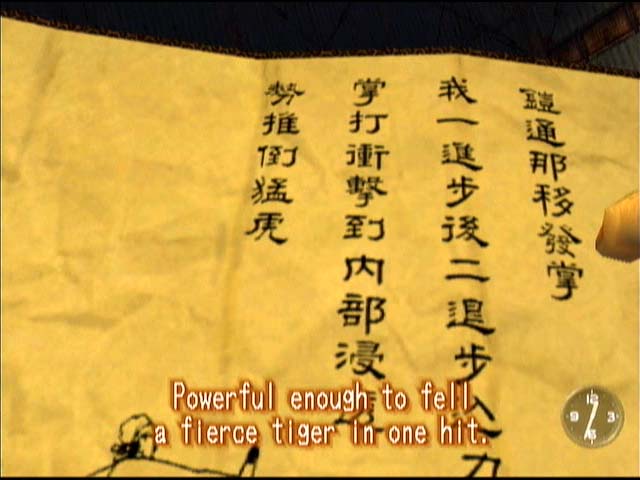 鎧通那移發掌
我一進步後二退步
掌打衝擊到內部浸
勢推倒猛虎
Powerful enough to fell
a fierce tiger in one hit.
12
9 3
6